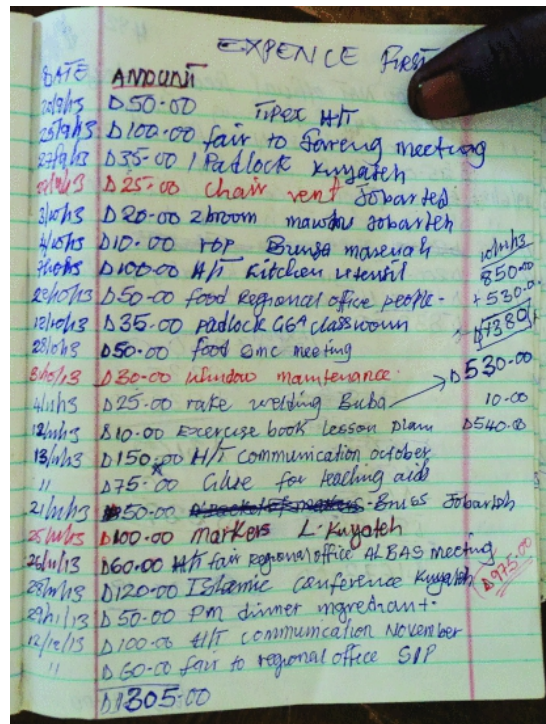 EXPENCE FIRST
DATE AMOUNT
D50.00 Tipex H/T
25/9/13 D100.00 fair to Sareng meeting
27/9/13 D35.00 1 Padlock Kuyateh
D25.00 chair rent Jobarteh
3/10/13 D20.00 2broom mawdou Jobarteh
4/10/13 D10.00 rop Brunsa
7/10/13 D100.00 H/T Kitchen utensil
D50.00 food Regional office people.
D35.00 padlock G6A classroom
28/10/13 D50.00 food smc meeting
8/10/13 D30.00 window maintenance.
4/11/13 D25.00 rake welding Buba
12/11/13 D10.00 Exercise book Lesson plan
13/11/13 D150.00 H/T communication october
" D75.00 Glue for teaching aid
21/11/13 D50.00 Jobarteh
25/11/13 D100.00 markers L. Kuyateh
26/11/13 D60.00 H/T fair regional office ALBAS meeting
28/11/13 D120.00 Islamic conference Kuyateh
29/11/13 D50.00 Pm dinner ingredhant.
12/12/13 D100.00 H/T communication November
" D60.00 fair to regional office SIP
D1305.00
850.00
+ 530.0
1380
D530.00
10.00
D540.00
D975.00